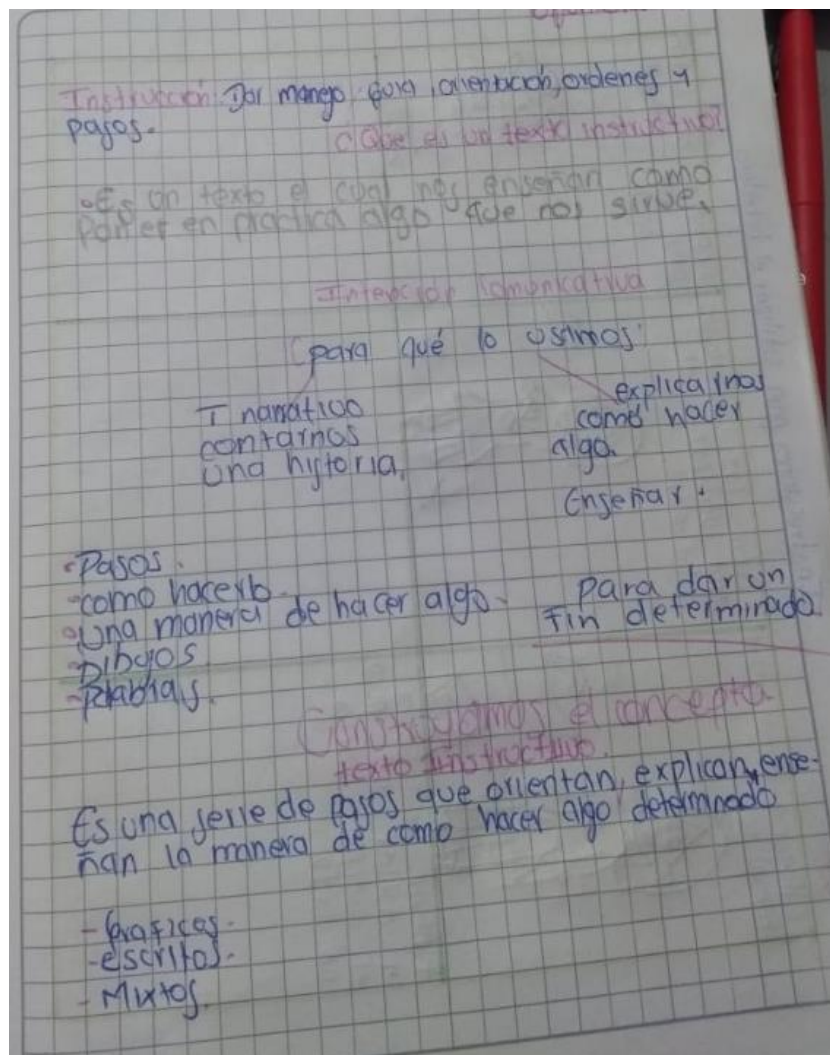 Instrucción: Dar manejo, guia, orientación, ordenes y
pasos.
¿Que es un texto instructivo?
•Es un texto el cual nos enseñan como
poner en practica algo que nos sirve.
Intención comunicativa
¿para qué lo usamos?
T narrativo
contarnos
una historia.
explicarnos
como hacer
algo.
Enseñar.
•Pasos.
-como hacerlo.
•una manera de hacer algo.
-Dibujos
-Palabras.
para dar un
fin determinado.
Construyamos el concepto
texto instructivo.
Es una serie de pasos que orientan, explican, ense-
ñan la manera de como hacer algo determinado
-Graficos.
-escritos.
-Mixtos.